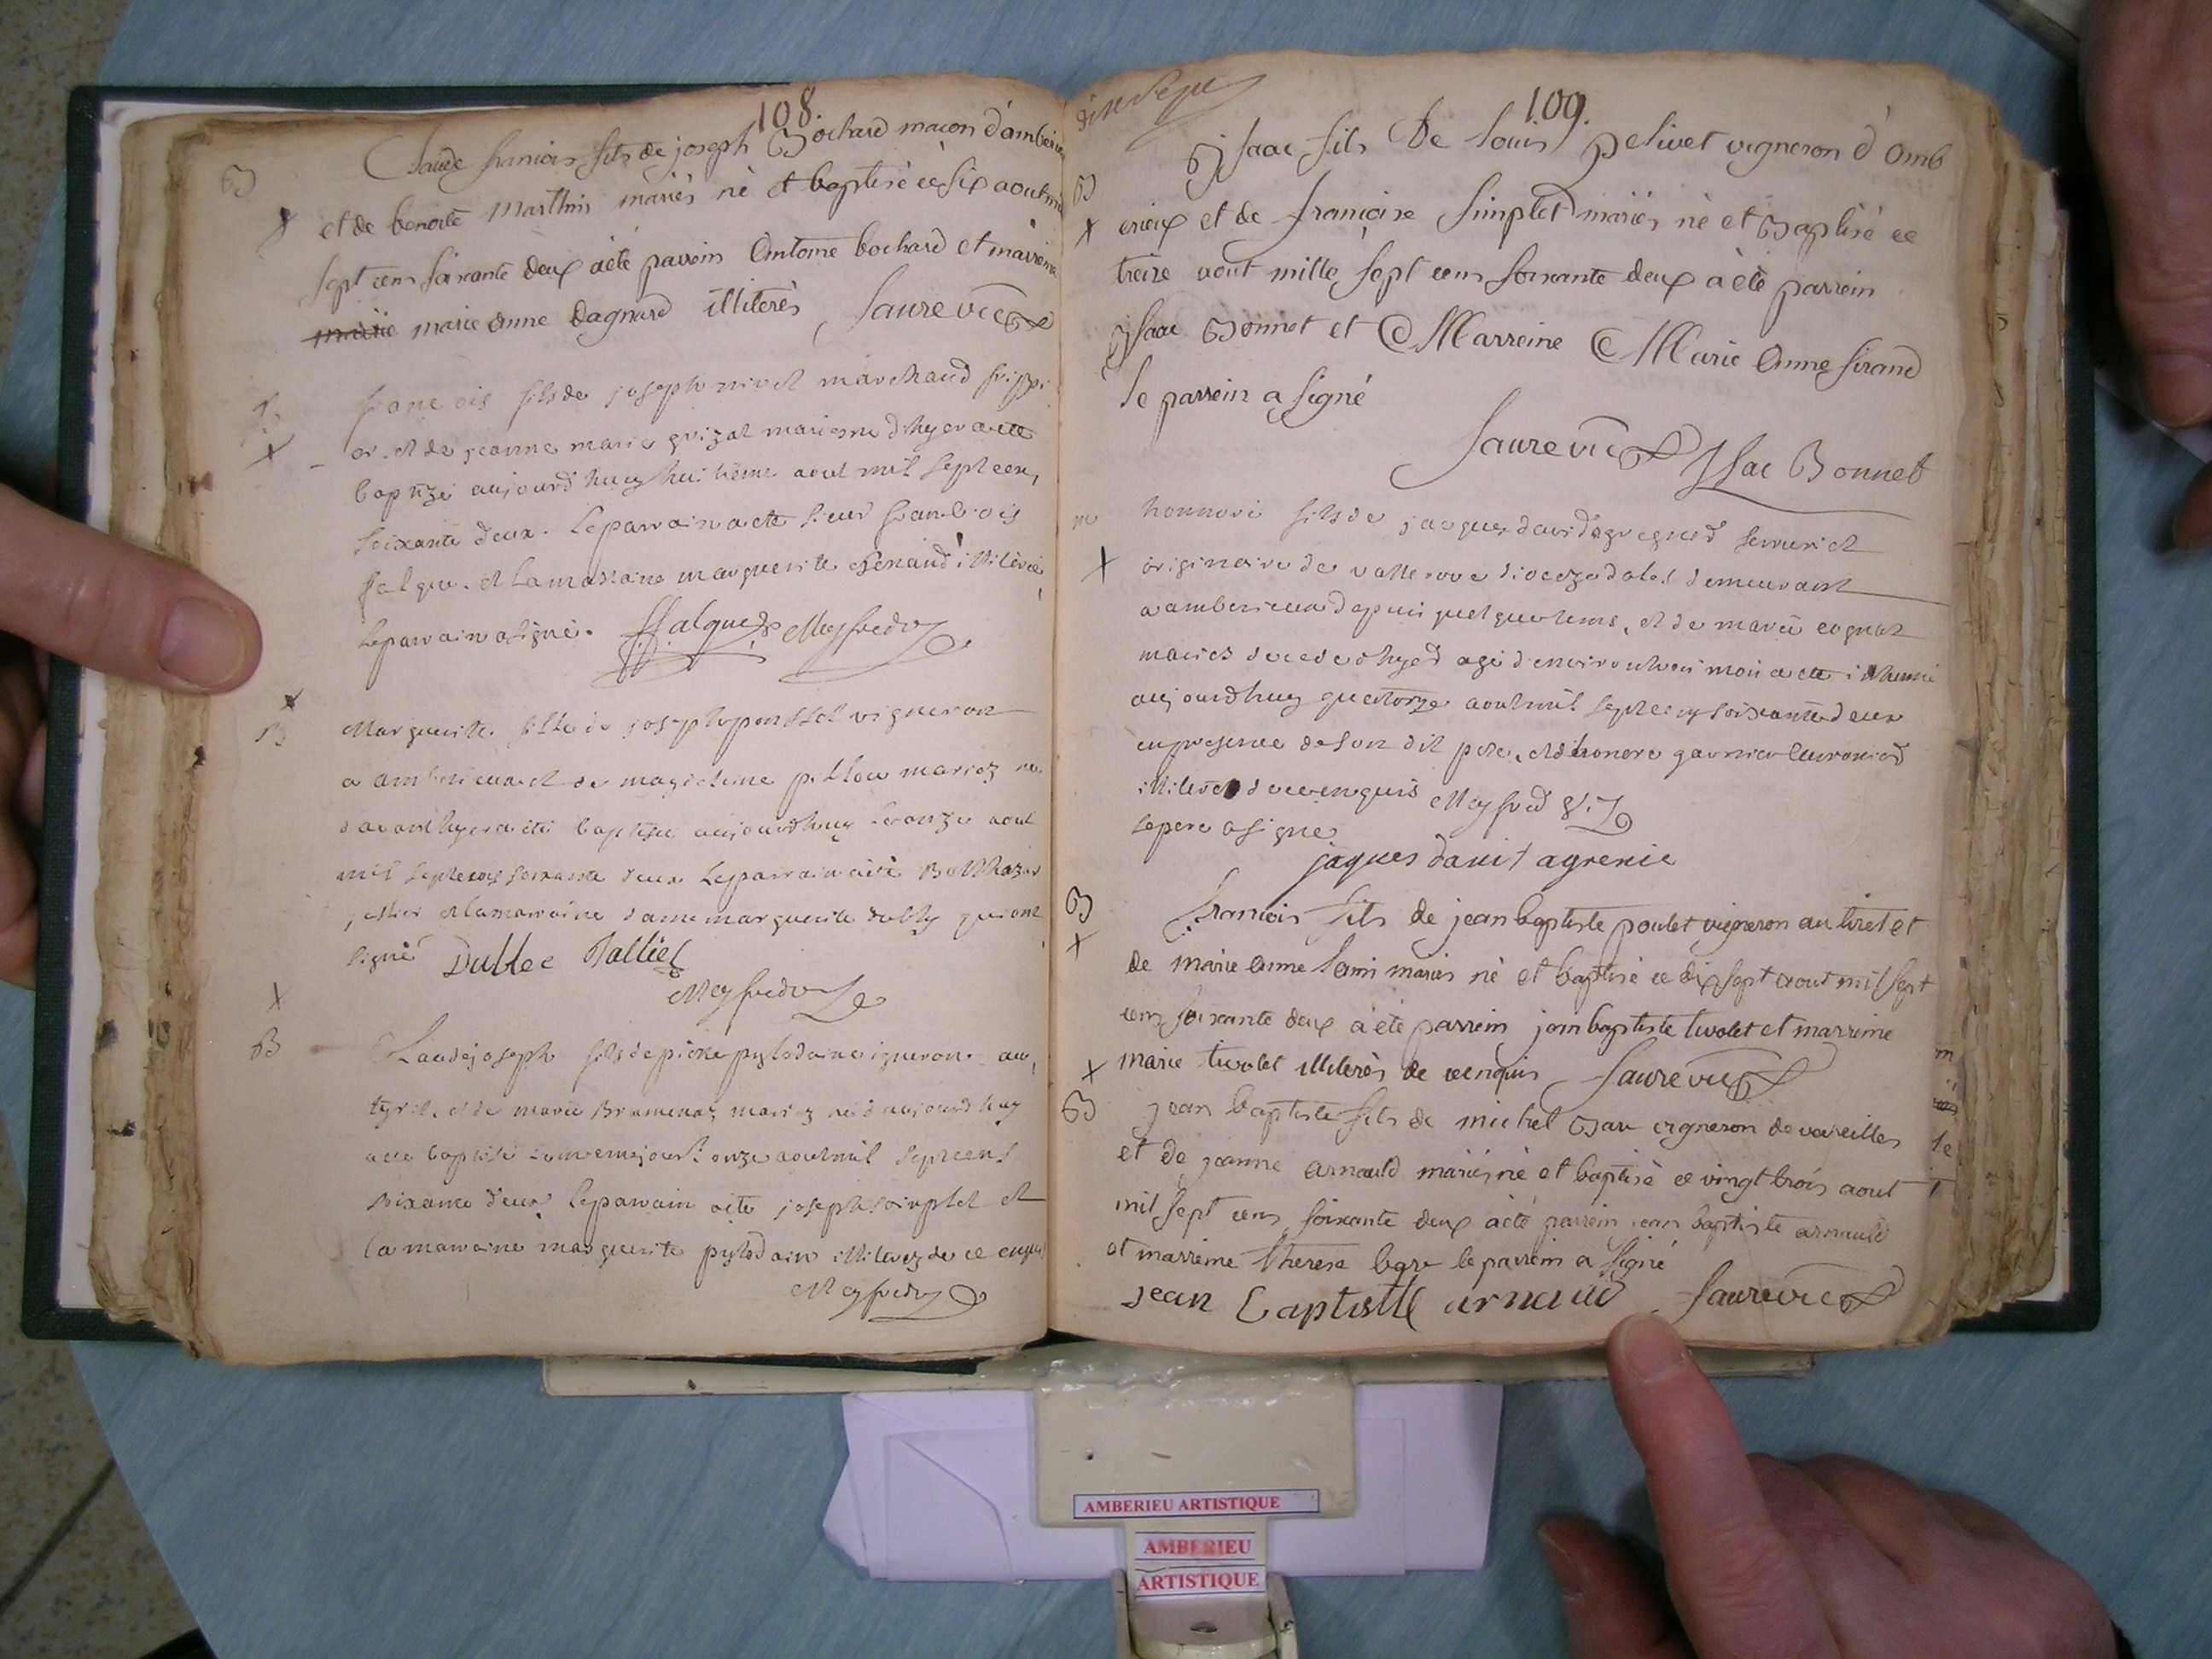 108.
B
Claude francois fils de joseph Bochard macon d'amberieu
et de benoite Marthin mariés né et baptisé ce six aout mil
sept cens soixante deux a été parrein Antoine bochard et marreine
marie anne dagnard illiterés, Saure vic
B
francois fils de joseph nivet marchand frippi
er. et de jeanne marie grizat mariés né d'hyer a ete
baptizé aujourd'huy huitieme aout mil sept cens
soixante deux. le parrain a ete sieur francois
falque. et la marraine marguerite Renaud illiterée,
le parrain a signé. Falque Meyfredy
X
B
Marguerite fille de joseph ponsset vigneron
a amberieux et de magdeleine pillou mariez née
d'avanthyer a été baptisée aujourdhuy onze aout
mil sept cens soixante deux le parrain a été Balthazar
et la marraine dame marguerite dubly qui ont
signé Dublee Tallier
Meyfredy
X
B
Claude joseph fils de pierre pylodain vigneron au
tyret, et de marie Bramenaz mariez né d'aujourdhuy
a ete baptisé le meme jour onze aout mil sept cens
soixante deux le parrain a ete joseph simplet et
la marraine marguerite pylodain illiterez de ce enquis
Meyfredy
109.
B
X
Isaac fils De Louis pelivet vigneron d'amb
erieux et de francoise simplet mariés né et Baptisé ce
treize aout mille sept cens soixante deux a été parrein
Isaac Bonnet et Marreine Marie Anne sirand
le parrein a signé
Saure vic Isac Bonnet
X
honnoré fils de jacques david serrurier
originaire de dioceze demeurant
a amberieux depuis quelque tems, et de marie cognat
mariés decedé d'hyer agé d'environ trois mois a ete inhumé
aujourdhuy quatorze aout mil sept cens soixante deux
en presence de son dit pere, et d'honoré garnier
illiteré de ce enquis Meyfred
le pere a signé
jaques davit agrenie
B
X
francois fils de jean baptiste poulet vigneron au tiret et
de marie anne Lami mariés né et baptisé ce dix sept aout mil sept
cens soixante deux a été parrein jean baptiste tivolet et marreine
marie tivolet illiterés de ce enquis Saure vic
X
B
jean baptiste fils de michel Bare vigneron de vareilles
et de jeanne arnauld mariés né et baptisé ce vingt trois aout
mil sept cens soixante deux a été parrein jean baptiste arnauld
et marreine therese bare le parrein a signé
jean baptiste arnaud Saure vic
AMBERIEU ARTISTIQUE
AMBERIEU
ARTISTIQUE